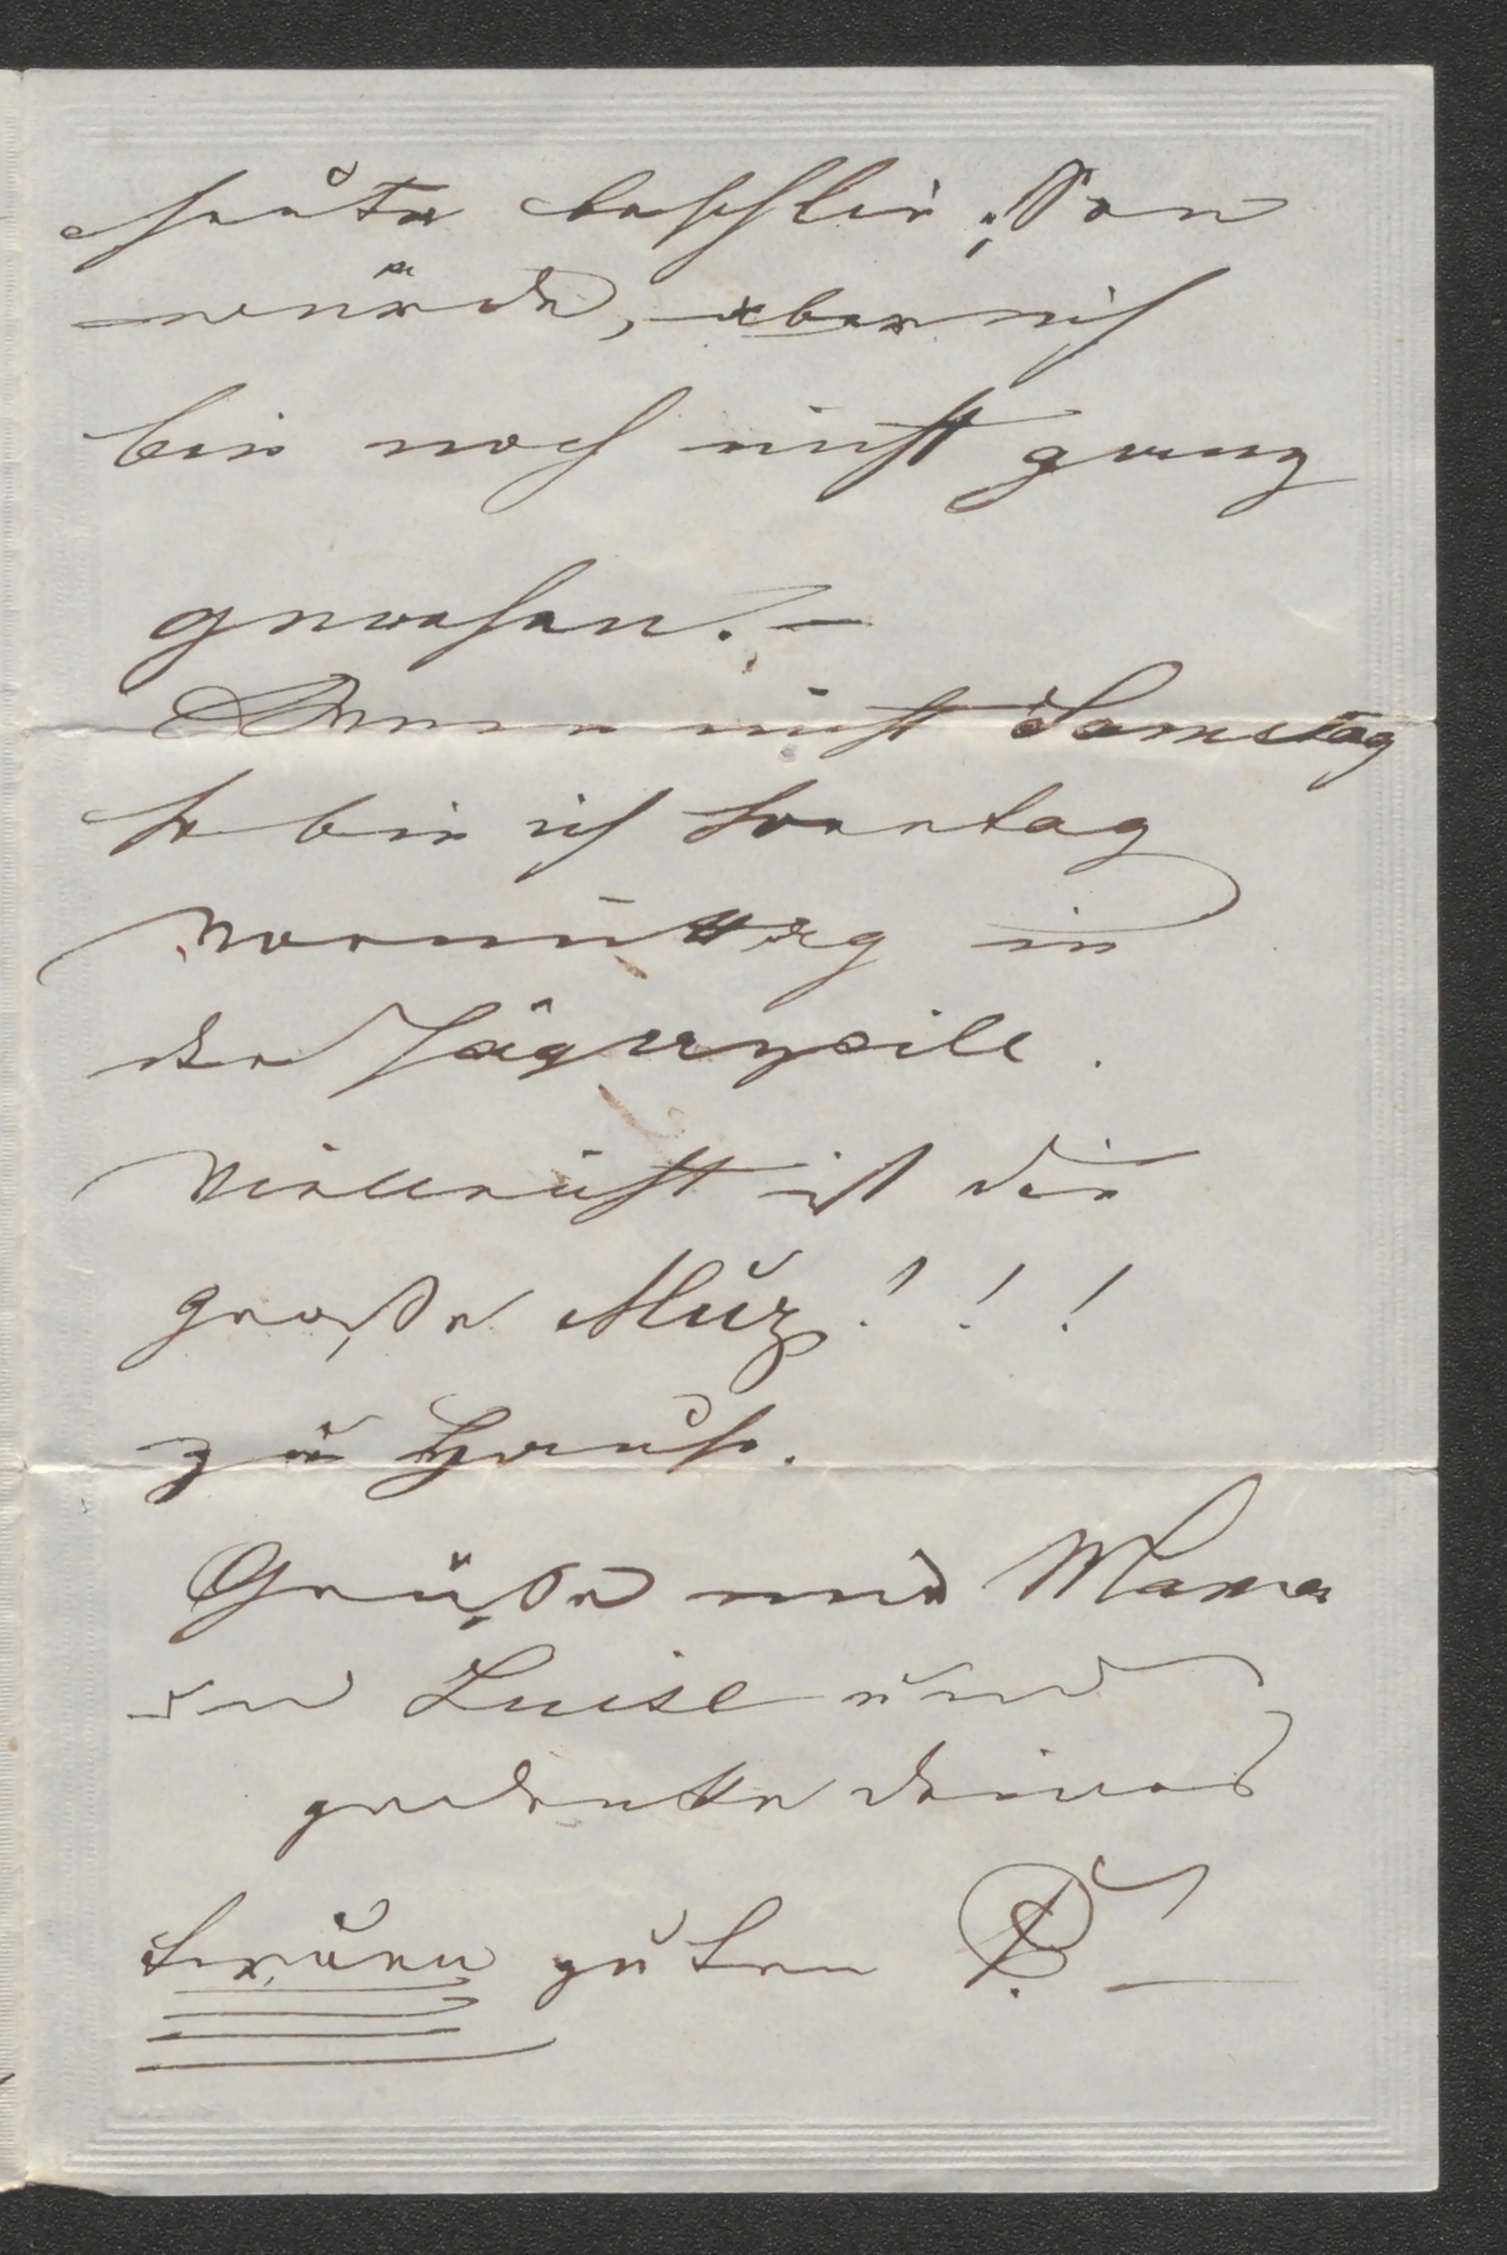 heute beschließen
würde, aber ich
bin noch nicht ganz
genesen. –
Wenn nicht Samstag
so bin ich Sonntag
Vormittag in
der Jägerzeile.
Vielleicht ist die
große Muz!!!
zu Hause.
Grüße mir Mama
und Luise und
gedenke deines
treuen guten